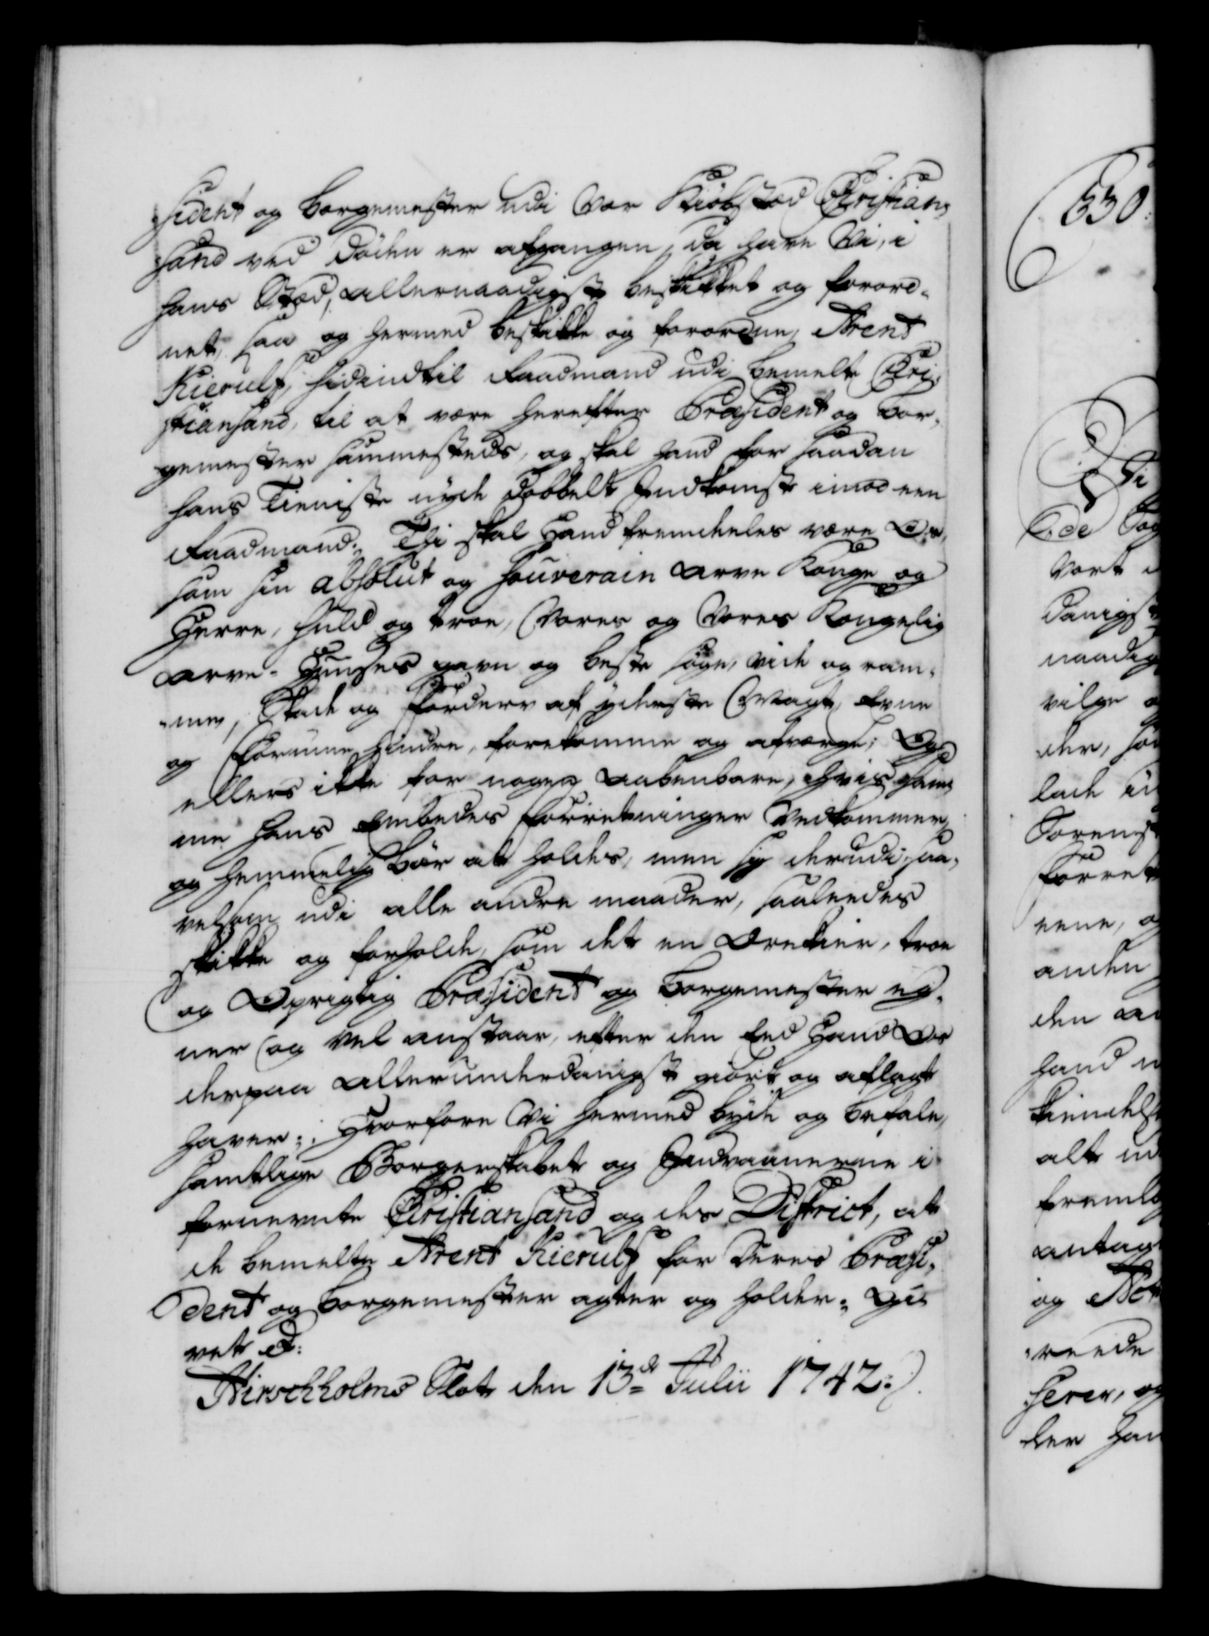 sident og Borgemester udi Vor Kiøbsted Christian¬
sand ved Døden er afgangen, da have Vi, i
hans Sted, allernaadigst beskikket og forord¬
net, saa og hermed beskikke og forordne, Arent
Kierulf, hidindtil Raadmand udi bemelte Chri¬
stiansand, til at være herefter Præsident og Bor¬
gemester sammesteds, og skal hand for saadan
hans Tieniste nyde dobbelt Indkomst imod een
Raadmand. Thi skal Hand fremdeeles være Os,
som sin absolut og souverain Arve Konge og
Herre, huld og troe, Vores og Vores Kongelig
Arve-Huuses gavn og beste søge, vide og ram¬
me, Skade og Forderv af yderste Magt, Evne
og Formue hindre, forekomme og afværge; Og
ellers ikke for nogen aabenbare, hvis ham
me hans Embedes Forretninger vedkommer,
og hemmelig bør at holdes, men sig derudi, saa¬
velsom udi alle andre maader, saaleedes
skikke og forholde, som det en Ærekier, troe
og Oprigtig Præsident og Borgemester eg¬
ner og vel anstaar, efter den Eed Hand Os
derpaa allerunderdanigst giort og aflagt
haver. Hvorfore Vi hermed byde og befale,
samtlige Borgerskabet og Indvaanerne i
fornevnte Christiansand og des District, at
de bemelte Arent Kierulf for Deres Præsi¬
dent og Borgemester agter og holder. Gi¬
vet p:
Hirschholms Slot den 13de Julii 1742.
530.